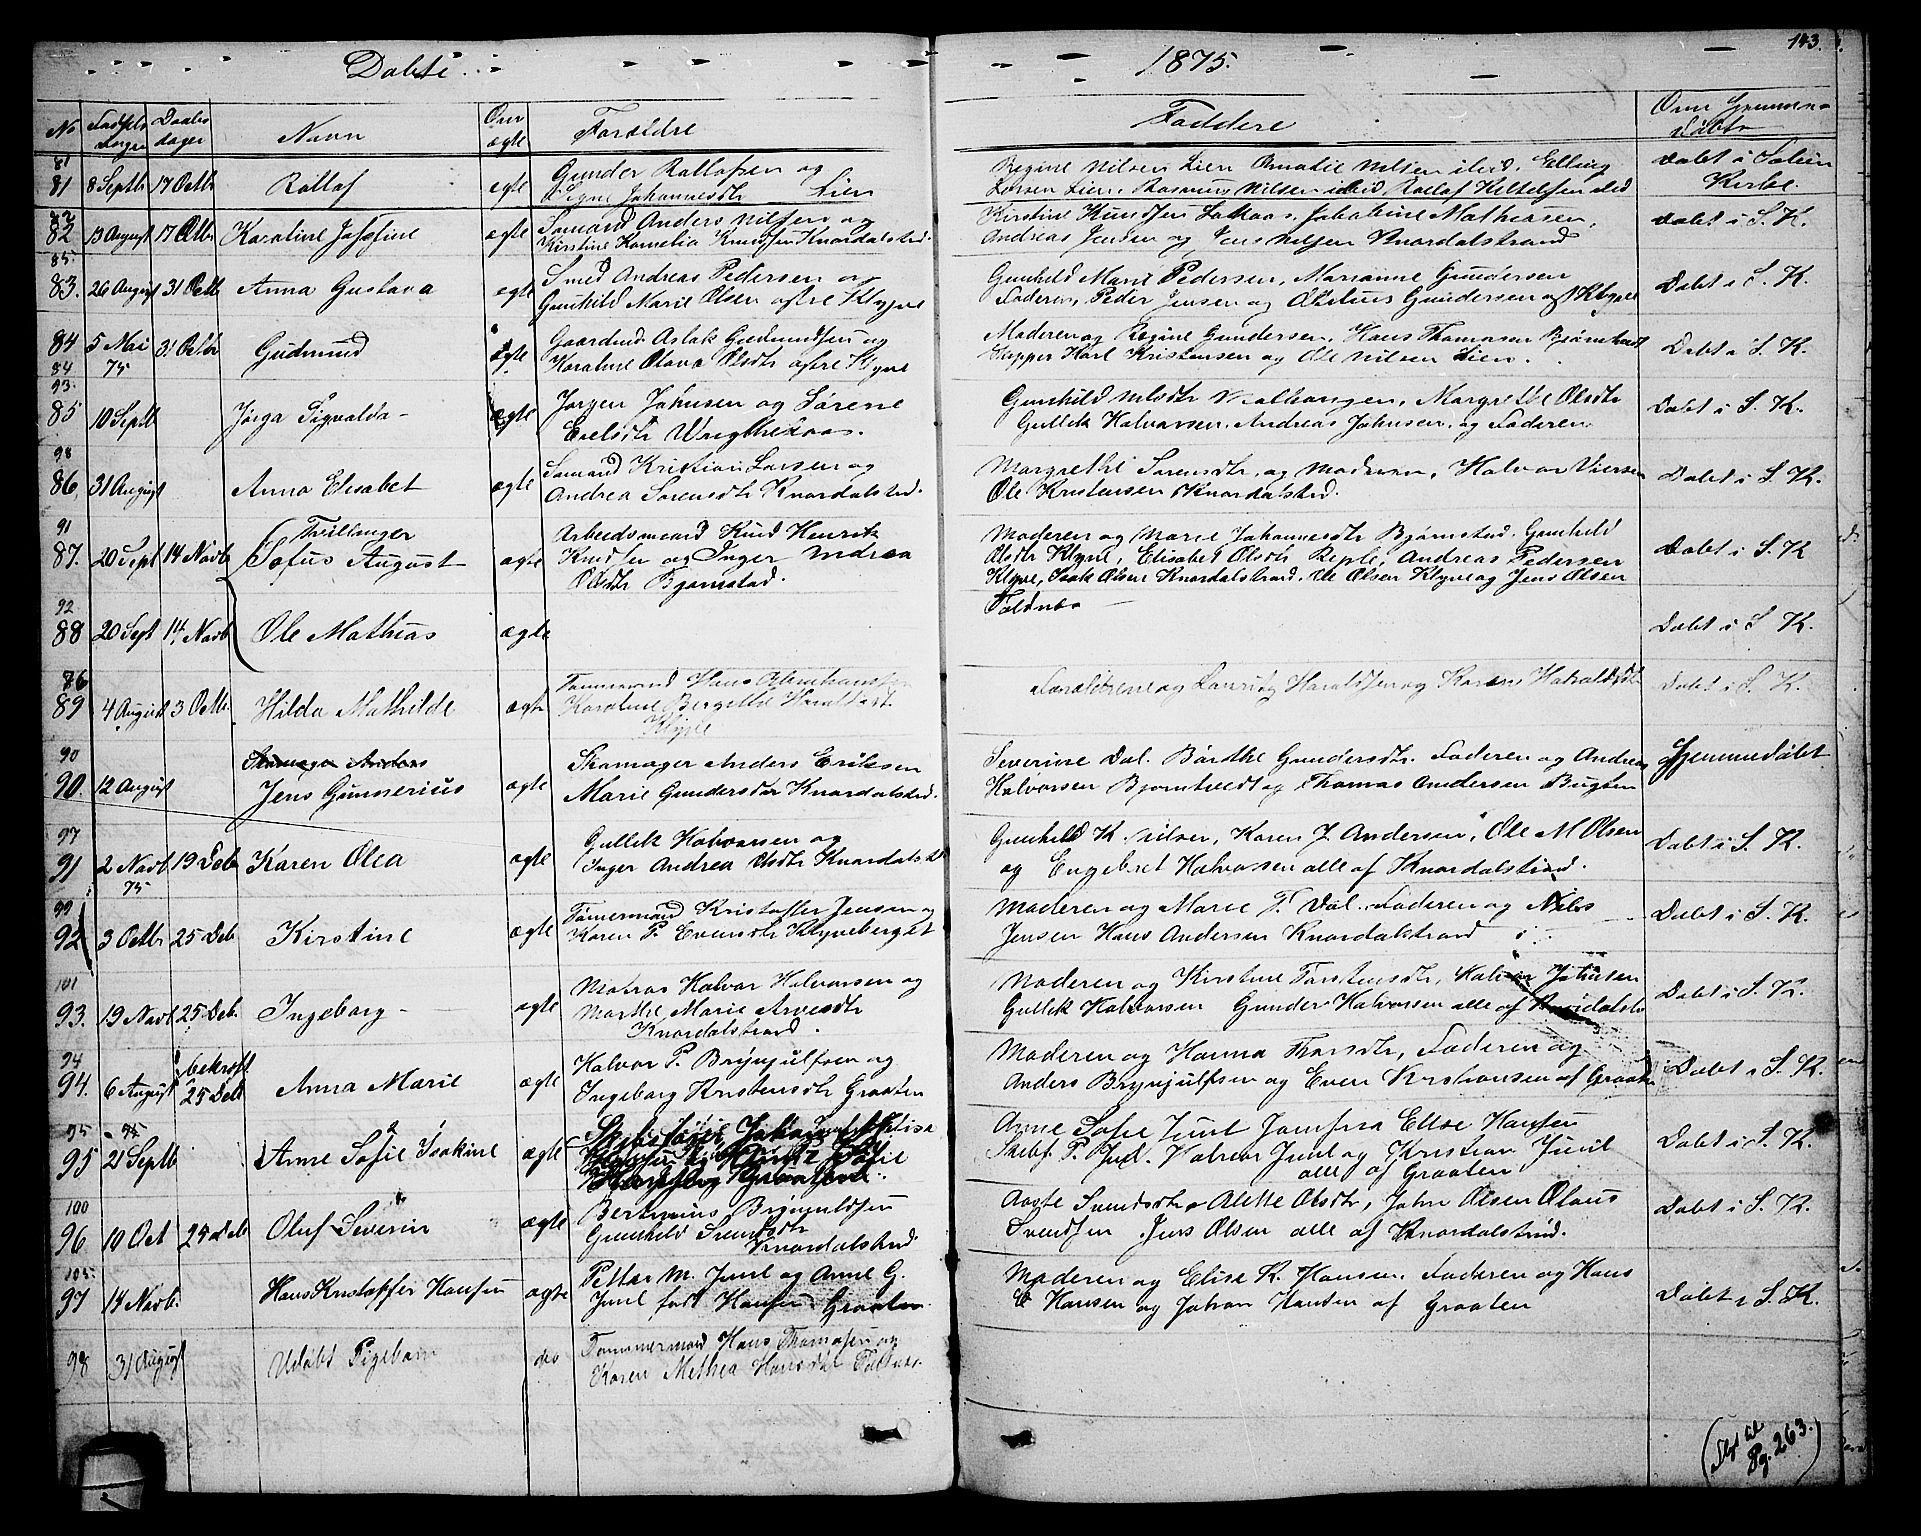 Døbte
1875.
143.
No Fødsels dager Daabs dager Navn Om ægte Forældre
Faddere
Om Hjemmedøbte
81
81 8 Septb 17 Octb Rollof ægte Gunder Rollofsen og
Signe Johannesdtr Lien
Regine Nilsen Lien Nilsen ibid. Elling
Larsen Lien, Rasmus Nilsen ibid, Rollof Kittelsen ibid
Døbt i Solum
Kirke.
82 13 August 17 Octb Karoline Josefine ægte Sømand Anders Nilsen og
Kirstine Kornelia Knudsen Knardalstrd.
Kirstine Knudsen Jakobine Mathiesen,
Andreas Jensen og Jens Nilsen Knardalstrand
Døbt i S. K.
85.
83. 26 August 31 Octb Anna Gustava ægte Smed Andreas Pedersen og
Gunhild Marie Olsen øfre Klyve
Gunhild Marie Pedersen, Marianne Gundersen
Faderen, Peder Jensen og Gundersen Klyve
Døbt i S. K.
84 5 Mai 31 Octbr Gudmund ægte Gaardmd Aslak Gudmundsen og
75
84
Karoline Olava Olsdtr øfre Klyve
Moderen og Regine Gundersen, Hans Thomasen Bjørntvedt
Skipper Karl Kristensen og Ole Nilsen Lien.
Døbt i S. K.
93.
85 10 Septb Jørga Sigvalda - ægte Jørgen Johnsen og Sørene
Erelsdtr
Gunhild Nilsdtr Margrethe Olsdtr
Gullik Halvorsen, Andreas Johnsen, og Faderen
Døbt i S. K.
98
86 31 August Anna Elisabet ægte Sømand Kristian Larsen og
Andrea Sørensdtr Knardalstrd.
Margrethe Sørensdtr, og Moderen, Halvor Iversen
Ole Kristensen Knardalstrd.
Døbt i S. K.
91
Tvillinger
87. 20 Sept 14 Novb Sofus August ægte Arbeidsmand Knud Henrik
Knudsen og Inger Andrea
Olsdtr Bjørnstad.
Moderen og Marie Johannesdtr Bjørnstad. Gunhild
Olsdtr Klyve, Elisabet Olsdtr Andreas Pedersen
Klyve, Isak Olsen Knardalstrand. Ole Olsen Klyve og Jens Olsen
Døbt i S. K
92
88 20 Sept 14 Novb Ole Mathias ægte
Døbt i S. K.
86
89 4 August 3 Octb. Hilda Mathilde ægte Tømmermd Hans Abrahamsen
Karoline Bergithe Haraldsdt.
Klyve
Forældrene og Laurits Haraldsen og Karen Haraldsdtr
Døbt i S. K.
90
Skomager Anders
90. 12 August Jens Gunnerius ægte Skomager Anders Eriksen
Marie Gundersdtr Knardalstrd.
Severine Dal. Børthe Gundersdtr. Faderen og Andreas
Halvorsen Bjørntvedt og Thomas Andersen Bugten
Hjemmedøbt
97
91 2 Novb 19 Deb Karen Olea ægte Gullik Halvorsen og
75
Inger Andrea Olsdtr Knardalstd
Gunhild K Nilsen, Karen J. Andersen, Ole M Olsen
og Engebret Halvorsen alle af Knardalstrand.
Døbt i S. K.
99
92 3 Octbr 25 Deb Kirstine ægte Tømermand Kristoffer Jensen og
Karen P. Evensdtr Klyveberget
Moderen og Marie T. Dal. Faderen og Nils
Jensen Hans Andersen Knardalstrand
Døbt i S. K.
101
93. 19 Novb 25 Deb. Ingeborg - ægte Matros Halvor Halvorsen og
Marthe Marie Arvesdtr
Knardalstrand.
Moderen og Kirstine Torstensdtr, Halvor Johnsen
Gullik Halvorsen Gunder Halvorsen alle af Knardalstr
Døbt i S. K.
94 bekræft
94. 6 August 25 Deb Anna Marie ægte Halvor P. Brynjulfsen og
Ingeborg Kristensdtr Graaten
Moderen og Hanna Thorsdtr, Faderen og
Anders Brynjulfsen og Even Kristiansen af Graaten
Døbt i S. K.
95
95 21 Septb Anne Sofie Isakine ægte
Anne Sofie Juul Jomfru Elise Hansen
Skibsf. P. Juul. Halvor Juul og Kristian Juul
alle af Graaten
Døbt i S. K.
100
96 10 Oct 25 Deb Oluf Severin ægte Bertinius Brynjuldsen
Gunhild Svendsdtr
Knardalstrd.
Aaste Svendsdtr, Alette Olsdtr, John Olsen Olaus
Svendsen Jens Olsen alle af Knardalstrd.
Døbt i S. K.
105.
97 14 Novb. Hans Kristoffer Hansen ægte Petter M. Juul og Anne G.
Juul født Hansen Graaten.
Moderen og Elise K. Hansen. Faderen og Hans
Hansen og Johan Hansen af Graaten
Døbt i S. K.
98 31 August Udøbt Pigebarn do Tømmermand Hans Thomasen og
Karen Mathea Hansdtr
(Slgt til
Pg. 263.)